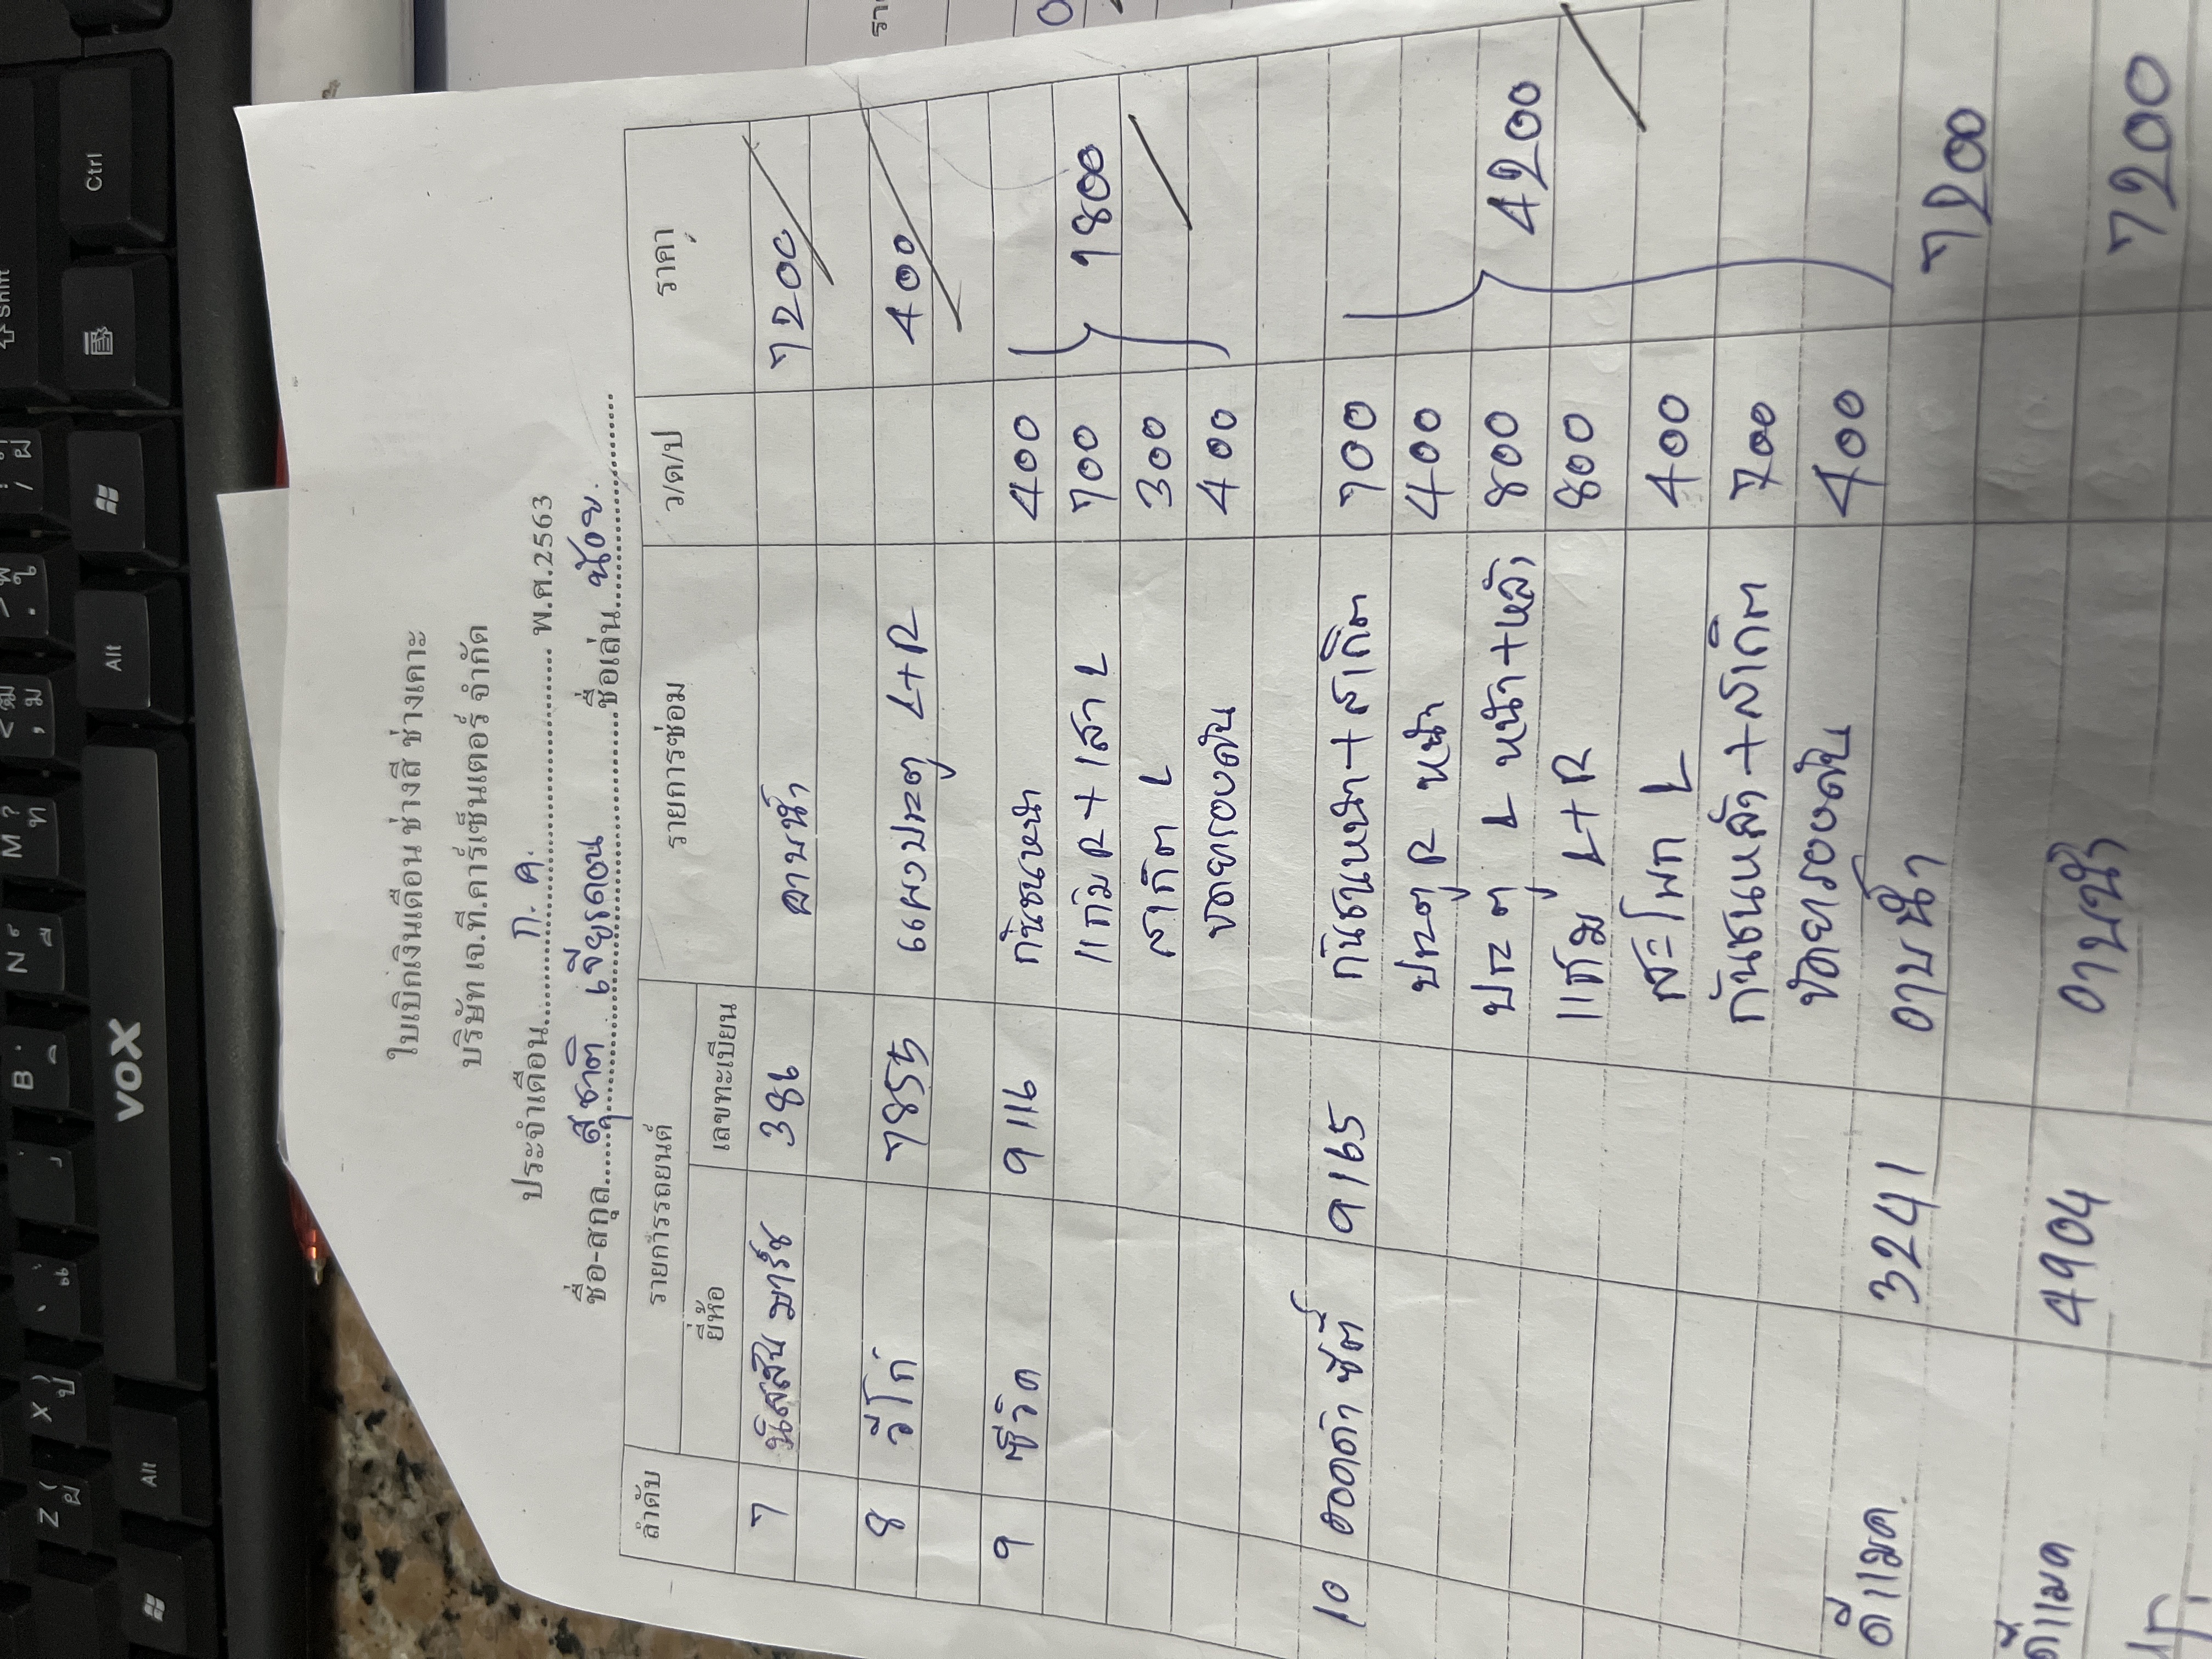 ใบเบิกเงินเดือน ช่างสี ช่างเคาะ
บริษัท เจ.ที.คาร์เซ็นเตอร์ จำกัด
ประจำเดือน ก.ค. พ.ศ.2563
ชื่อ-สกุล สุชาติ เจียรดอน ชื่อเล่น น้อย
ลำดับ รายการรถยนต์ รายการซ่อม ว/ด/ป ราคา
ยี่ห้อ เลขทะเบียน
7 นิสสัน มาร์ช 386 อาบน้ำ 7200
8 วีโก้ 7855 แผงประตู L+R 400
9 ซีวิค 9116 กันชนหน้า 400
แก้ม R + เสา L 700 1800
สเกิต L 300
ขัดยารองสัน 400
10 ฮอดด้า ซิตี้ 9165 กันชนหน้า+สเกิต 700
ประตู R หน้า 400
ประตู L หน้า+หลัง 800 4200
แก้ม L+R 800
สะโพก L 400
กันชนหลัง+สเกิต 700
ขัดยารองสัน 400
ดีแมค 3241 อาบน้ำ 7200
ดีแมค 4904 อาบน้ำ 7200
VOX
Ctrl
Alt
Alt
Shift